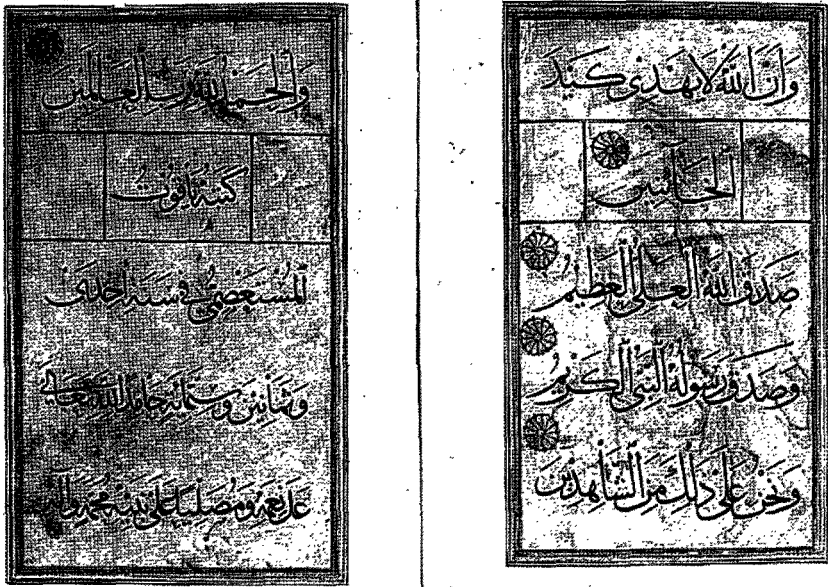 وَأَنَّ اللَّهَ لَا يَهْدِي كَيْدَ
الْخَائِنِينَ
صَدَقَ اللَّهُ الْعَلِيُّ الْعَظِيمُ
وَصَدَقَ رَسُولُهُ النَّبِيُّ الْكَرِيمُ
وَنَحْنُ عَلَى ذَلِكَ مِنَ الشَّاهِدِينَ
وَالْحَمْدُ لِلَّهِ رَبِّ الْعَالَمِينَ
كَتَبَهُ يَاقُوتُ
الْمُسْتَعْصِمِيُّ فِي سَنَةِ إِحْدَى
وَثَمَانِينَ وَسِتِّمِائَةٍ حَامِدًا لِلَّهِ تَعَالَى
عَلَى نِعَمِهِ وَمُصَلِّيًا عَلَى نَبِيِّهِ مُحَمَّدٍ وَآلِهِ